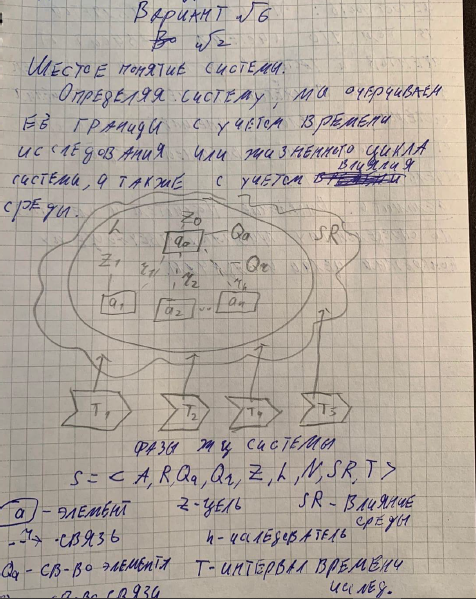 Вариант №6
№2
Шестое понятие системы.
Определяя систему, мы очерчиваем
её границы с учетом времени
исследования или жизненного цикла
системы, а также с учетом влияния
среды.
L Z0 a0 Qa SR
Z1 r1 r2 Qr
a1 a2 ... an
T1 T2 T4 T3
фазы жц системы
S = < A, R, Qa, Qr, Z, L, N, SR, T >
a - элемент Z - цель SR - влияние
среды
r - связь n - наледователь
Qa - св-во элемента T - интервал времени
исслед.
св-во связи